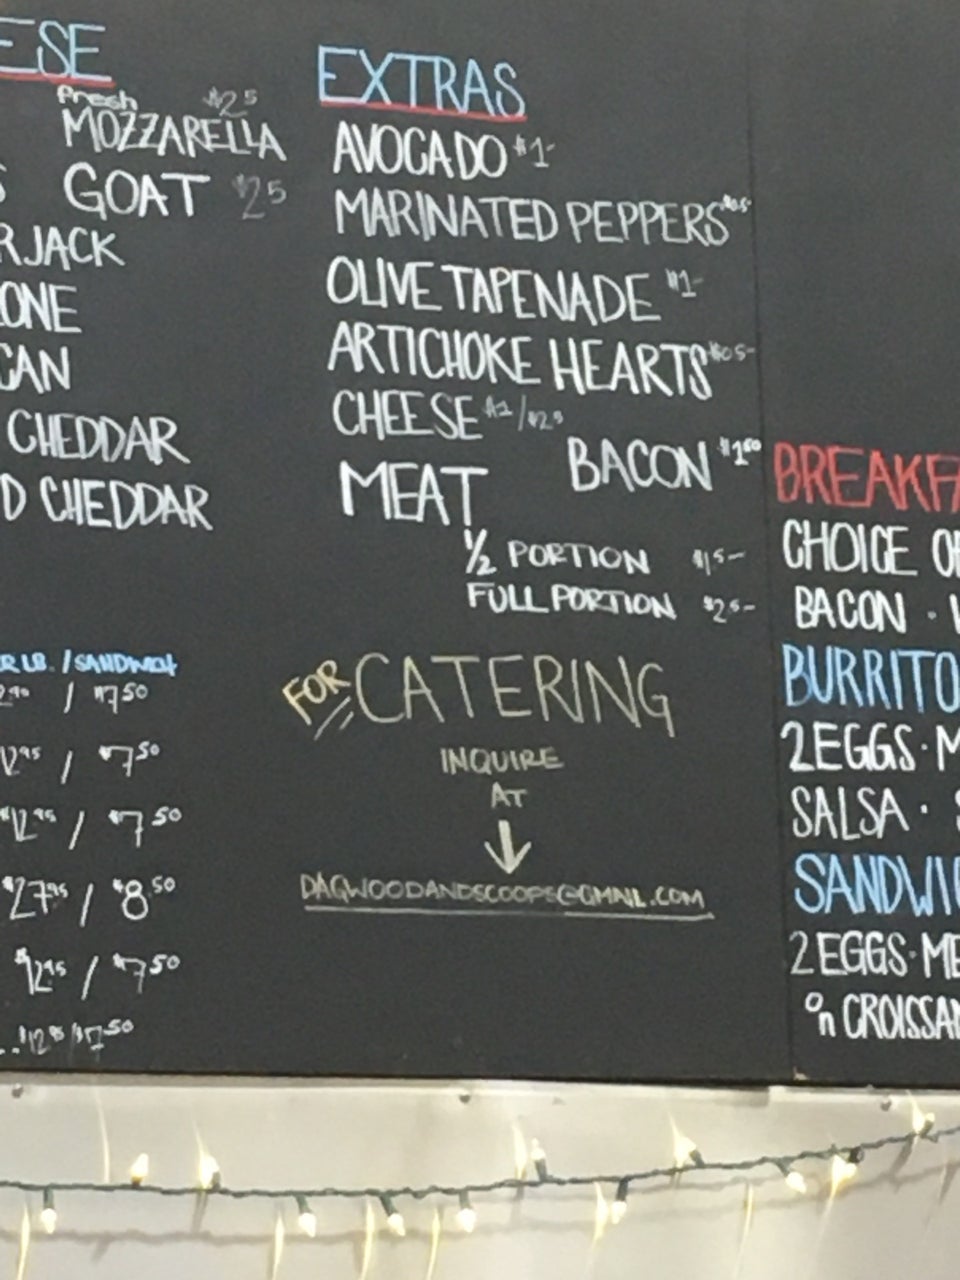 ESE
fresh $25
MOZZARELLA
GOAT $25
RJACK
ONE
CAN
CHEDDAR
D CHEDDAR
R LB. / SANDWICH
/ $7 50
12 95 / $7 50
$12 95 / $7 50
$27 95 / $8 50
$12 95 / $7 50
EXTRAS
AVOCADO $1-
MARINATED PEPPERS
OLIVE TAPENADE $1-
ARTICHOKE HEARTS
CHEESE
BACON
MEAT
1/2 PORTION
FULL PORTION $25-
FOR CATERING
INQUIRE
AT
DAGWOODANDSCOOPS@GMAIL.COM
BREAKFA
CHOICE OF
BACON ·
BURRITO
2 EGGS · M
SALSA · S
SANDWIC
2 EGGS · ME
on CROISSAN